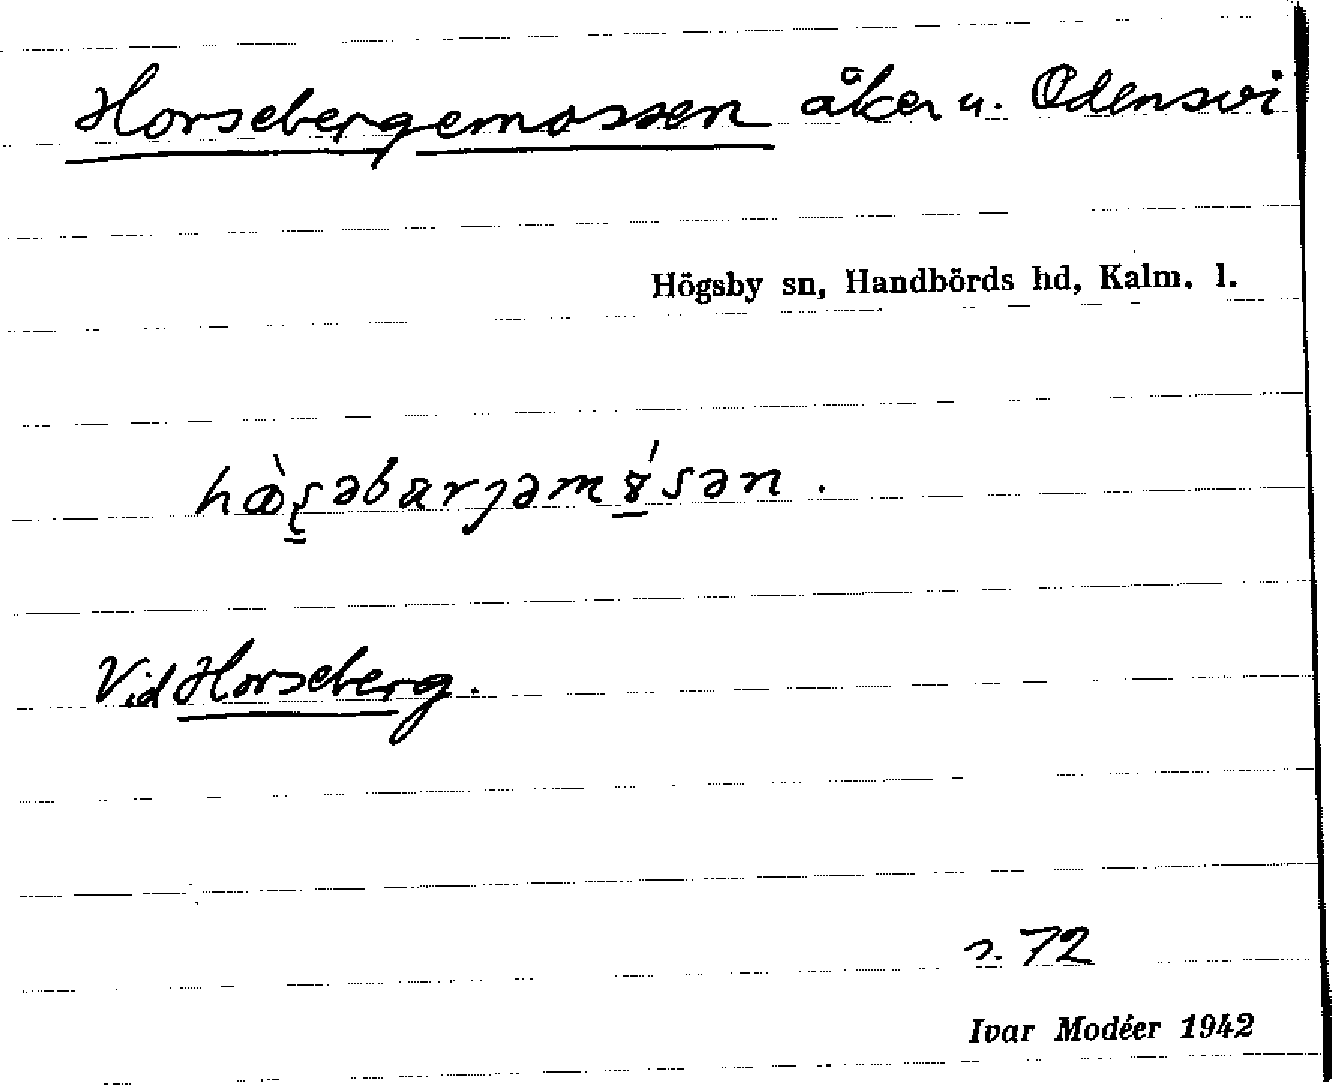 Horsebergemossen åker u. Odensvi
Högsby sn, Handbörds hd, Kalm. l.
Vid Horseberg.
s. 72
Ivar Modéer 1942